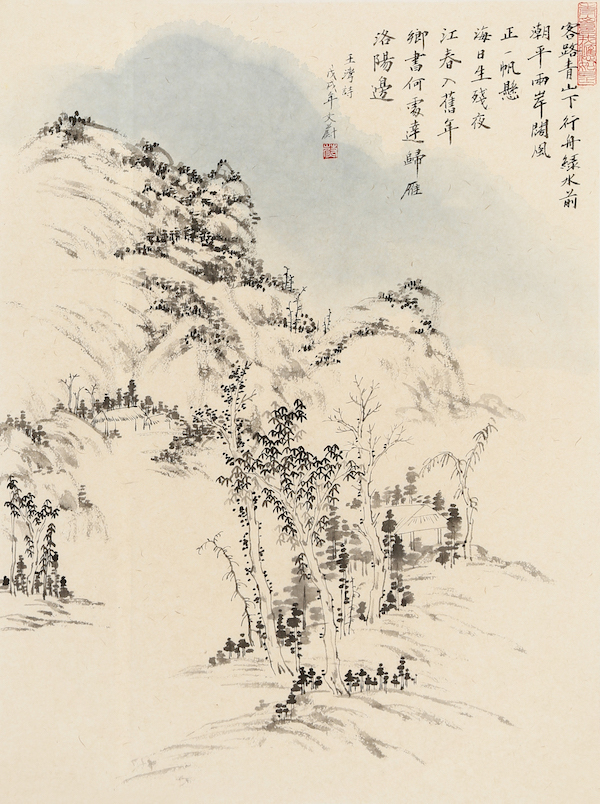 客路青山下行舟綠水前
潮平兩岸闊風
正一帆懸
海日生殘夜
江春入舊年
鄉書何處達歸雁
洛陽邊
王灣詩
戊戌年文